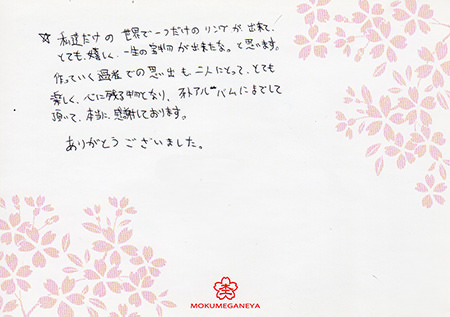 ☆ 私達だけの世界で一つだけのリングが出来て、
とても、嬉しく、一生の宝物が出来たな。と思います。
作っていく過程での思い出も、二人にとって、とても
楽しく、心に残る物となり、フォトアルバムにまでして
頂いて、本当に、感謝しております。
ありがとうございました。
杢
MOKUMEGANEYA